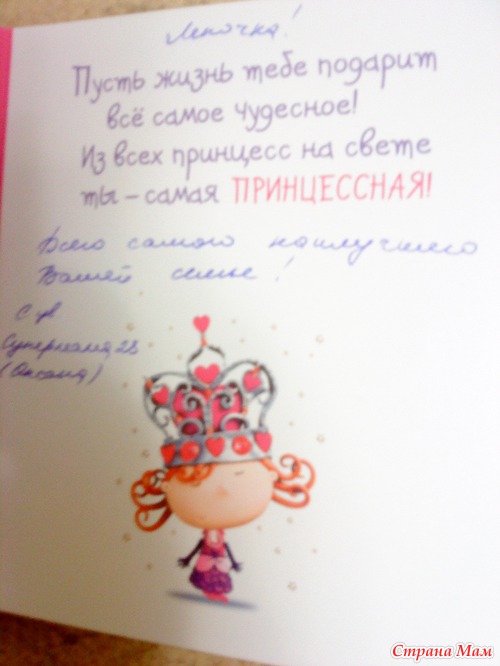 Леночка!
Пусть жизнь тебе подарит
всё самое чудесное!
Из всех принцесс на свете
ты – самая ПРИНЦЕССНАЯ!
Всего самого наилучшего
Вашей семье!
С ув.
Супермама28
(Оксана)
Страна Мам